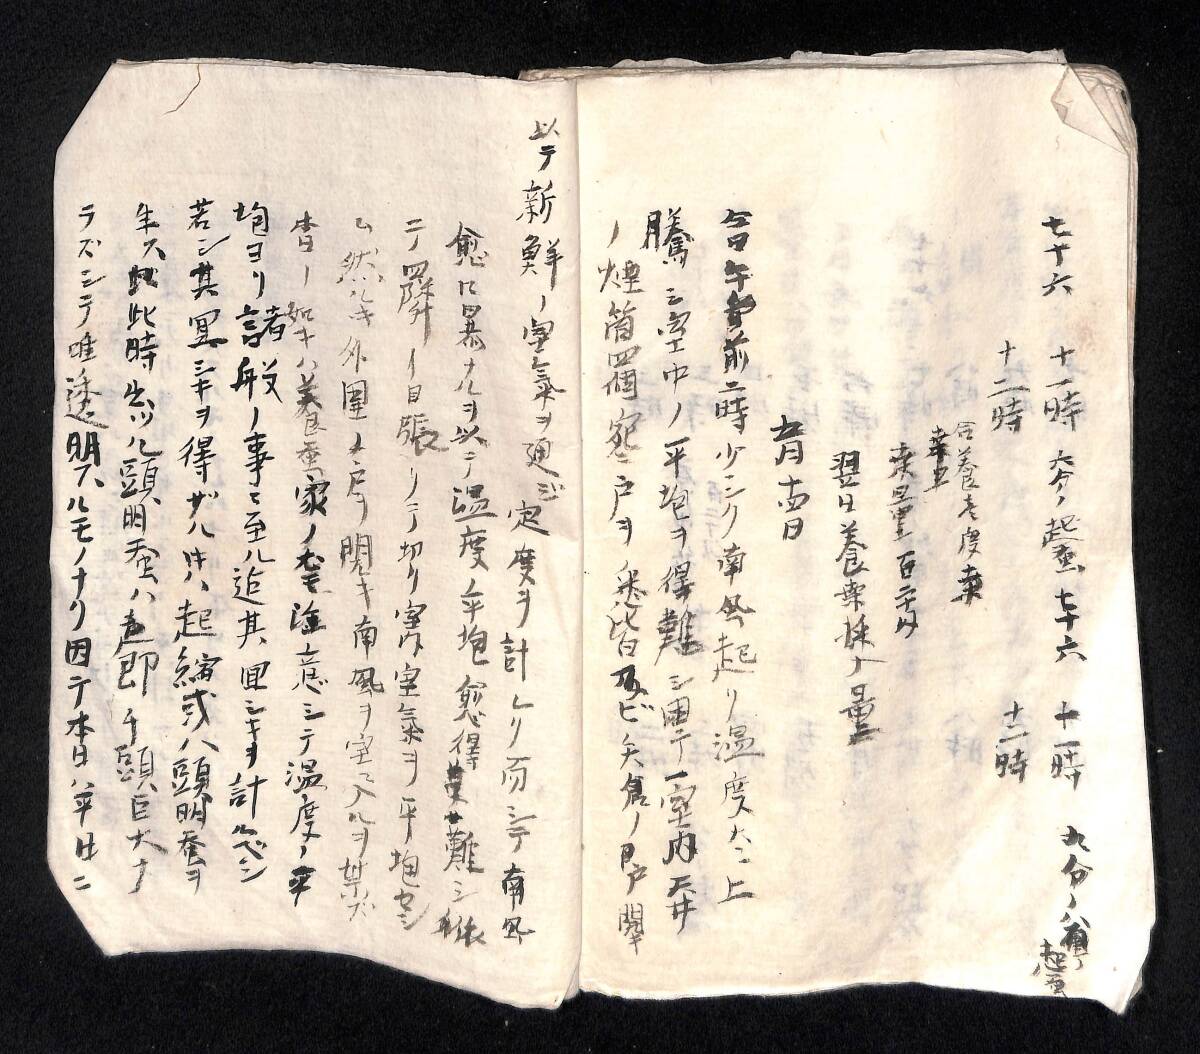 七十六 十一時 六分ノ起蚕 七十六 十一時 九分ノ 起蚕
十二時 十二時
養老度桑
桑量 百二十
翌日養桑採入量
五月十四日
今日午前二時少シク南風起リ温度大ニ上
騰シ室中ノ平均ヲ得難シ因テ一室内天井
ノ煙筒四個窓戸ヲ悉皆及ビ矢倉ノ戸開
以テ新鮮ノ空氣ヲ通ジ定度ヲ計レリ而シテ南風
愈暴ナルヲ以テ温度ノ平均愈得難シ依
テ四隣ノ目張リヲ切リ室内空氣ヲ平均セシ
ム然ルトキ外圍ノ戸ヲ開キ南風ヲ室ニ入ルヲ禁ズ
本日ノ如キハ養蚕家ノ尤モ注意シテ温度ノ平
均ヨリ諸般ノ事ニ至ル迄其宜シキヲ計ルベシ
若シ其宜シキヲ得ザル時ハ起縮或ハ頭明蚕ヲ
生ス此時出ツル頭明蚕ハ即チ頭巨大ナ
ラズシテ唯透明スルモノナリ因テ本日ハ平日ニ